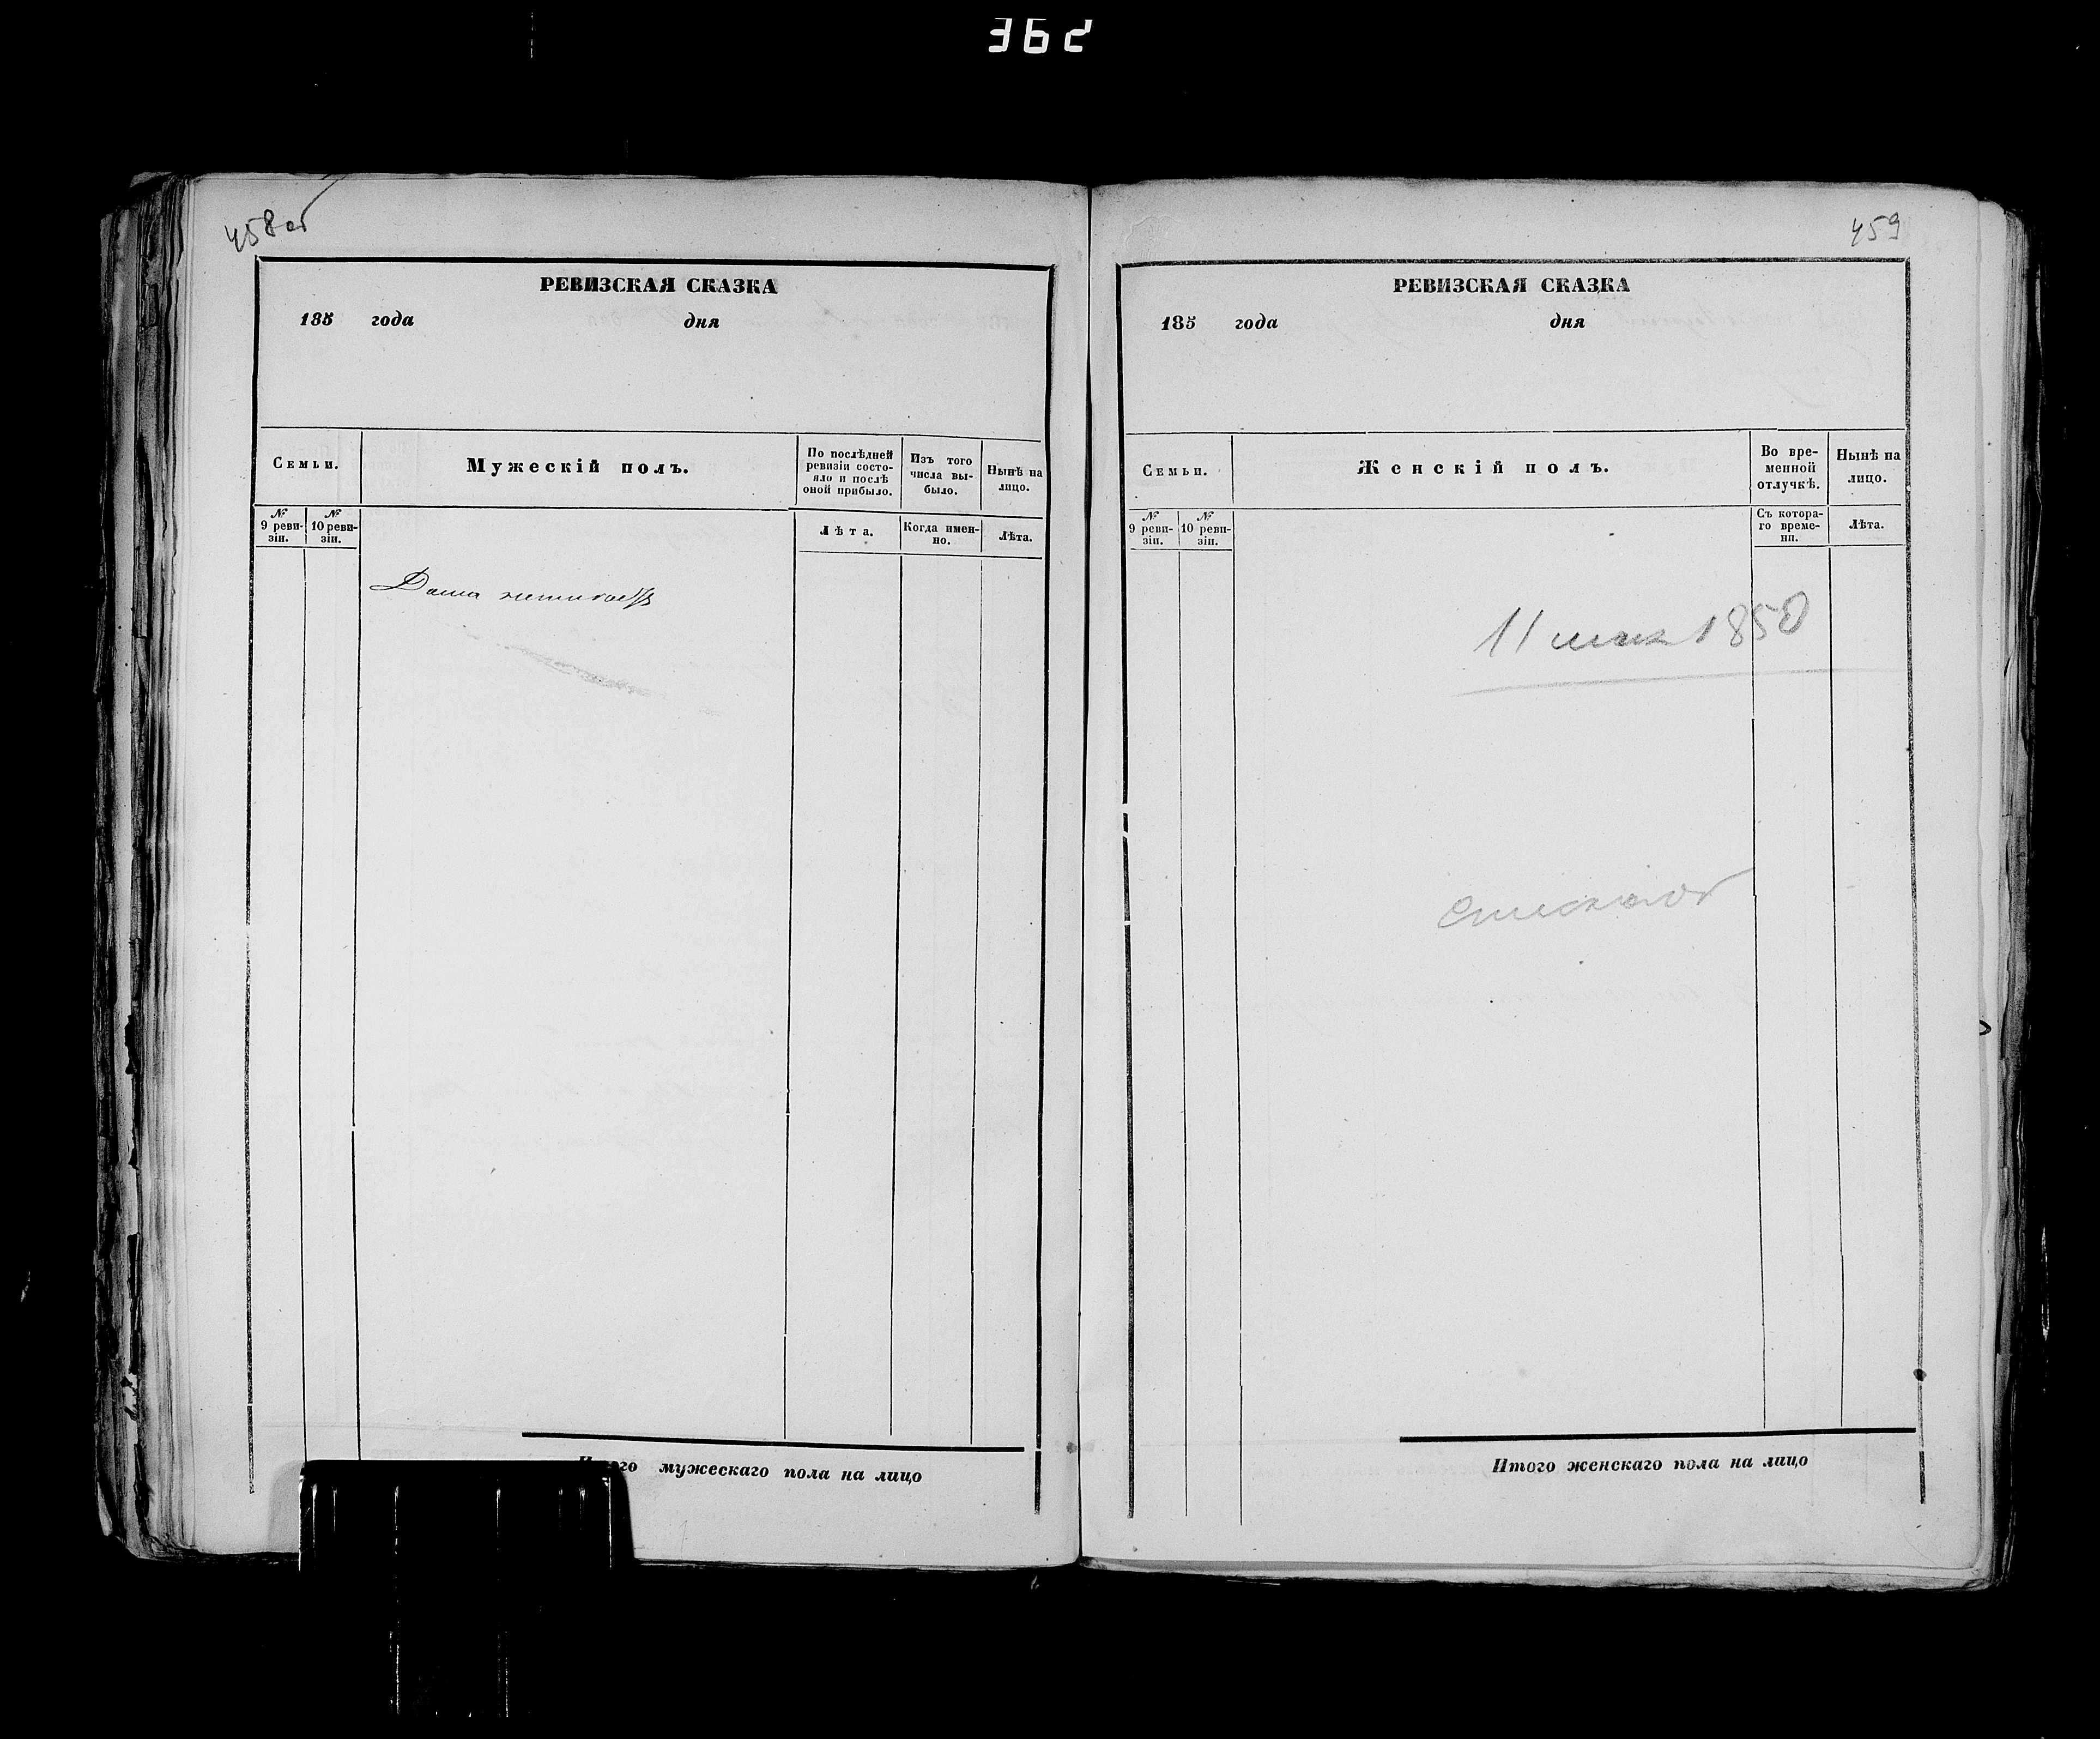 362
458об
РЕВИЗСКАЯ СКАЗКА
185 года дня
Семьи.
Мужескій полъ.
По послѣдней ревизіи состо-
яло и послѣ оной прибыло.
Изъ того числа вы-
было.
Нынѣ на лицо.
№ 9 реви-
зіи.
№ 10 реви-
зіи.
Лѣта.
Когда имен-
но.
Лѣта.
Итого мужескаго пола на лицо
459
РЕВИЗСКАЯ СКАЗКА
185 года дня
Семьи.
Женскій полъ.
Во вре-
менной
отлучкѣ.
Нынѣ на
лицо.
№ 9 реви-
зіи.
№ 10 реви-
зіи.
Съ котора-
го време-
ни.
Лѣта.
11 мая 1858
Итого женскаго пола на лицо